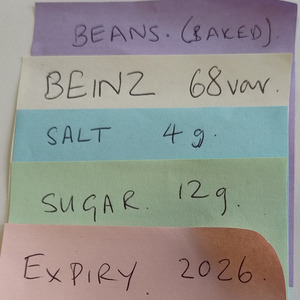 BEANS. (BAKED).
BEINZ 68var.
SALT 4g.
SUGAR. 12g.
EXPIRY. 2026.